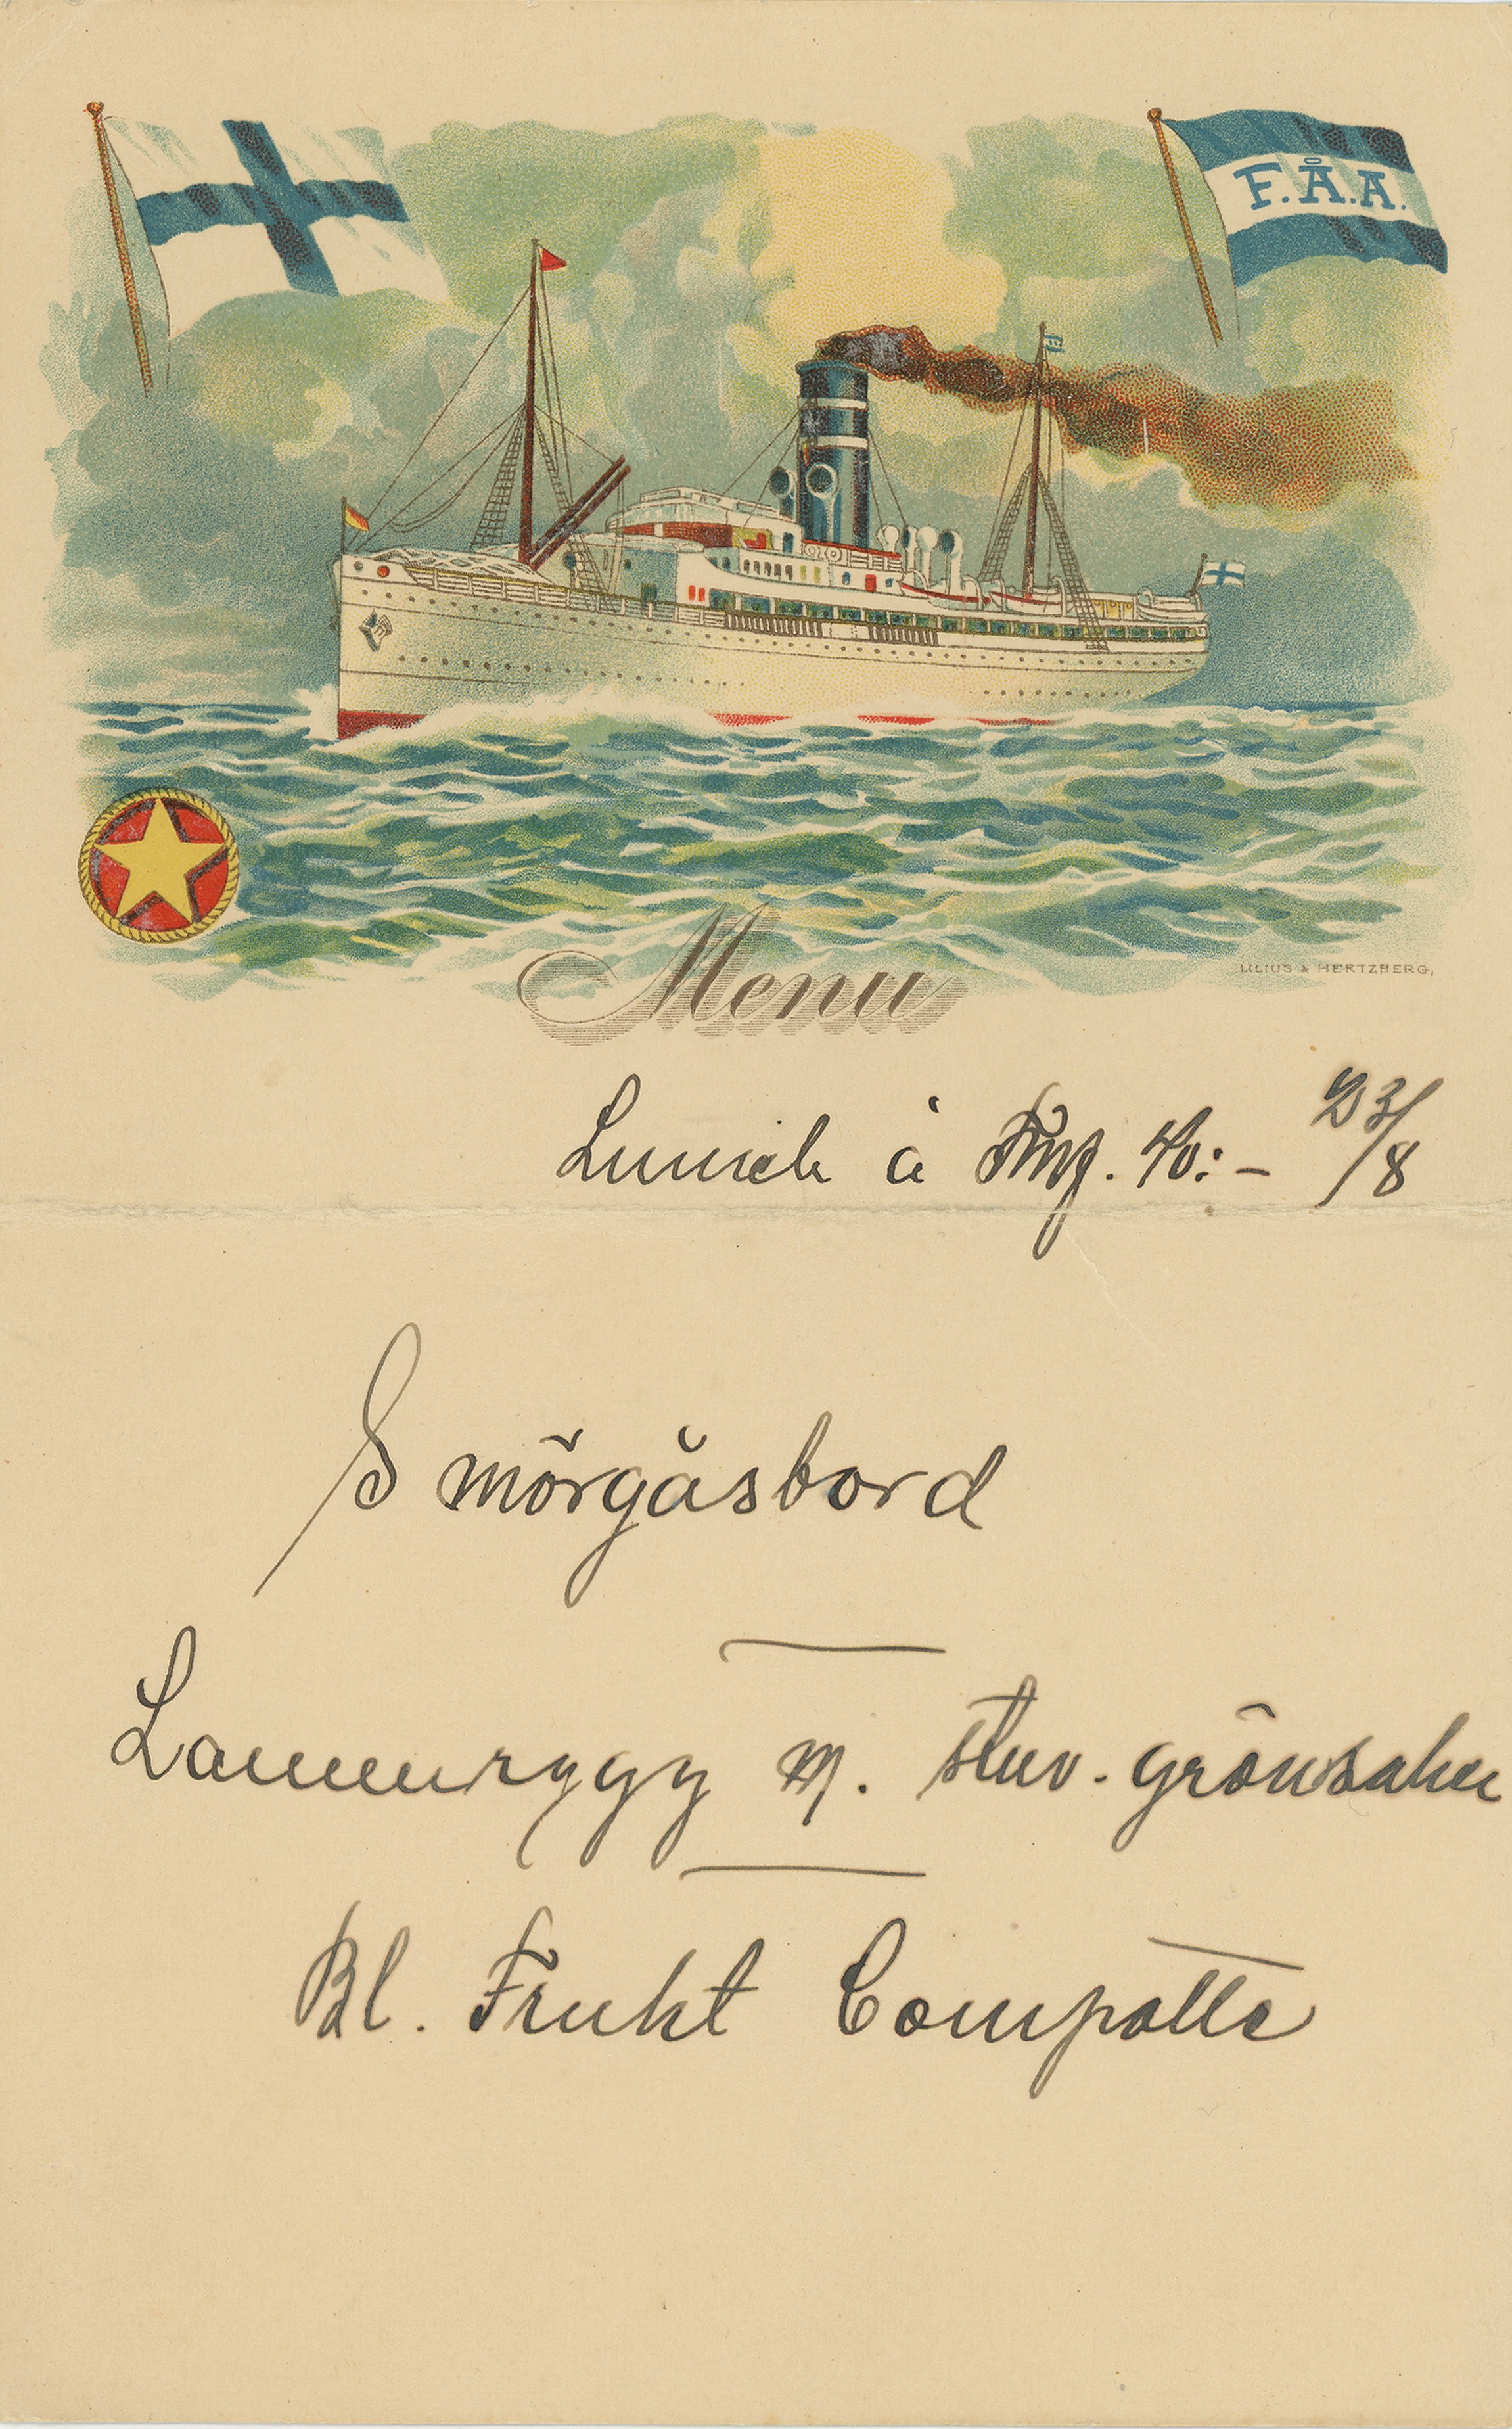 F.Å.A.
LILIUS & HERTZBERG,
Menu
Lunch à Fmf. 40:- 23/8
Smörgåsbord
Lammrygg m. stuv. grönsaker
Bl. Frukt Compotte